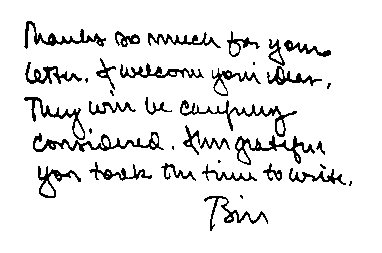 Thanks so much for your
letter. I welcome your ideas.
They will be carefully
considered. I'm grateful
you took the time to write.
Bill